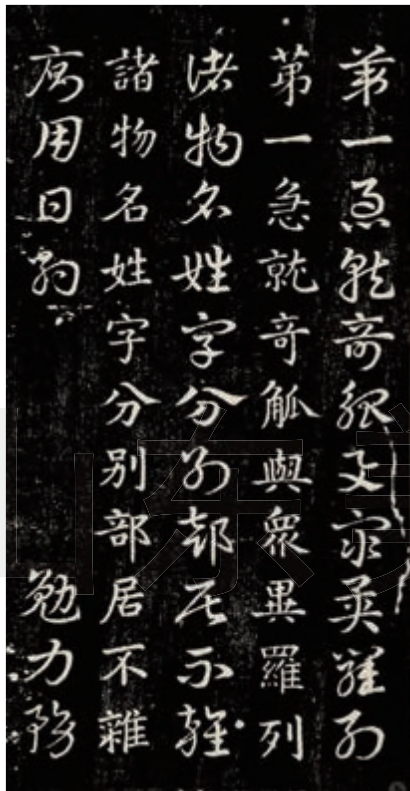 第一急就奇觚與衆異羅列
第一急就奇觚與衆異羅列
諸物名姓字分别部居不雜
諸物名姓字分别部居不雜
廁用日約 勉力務